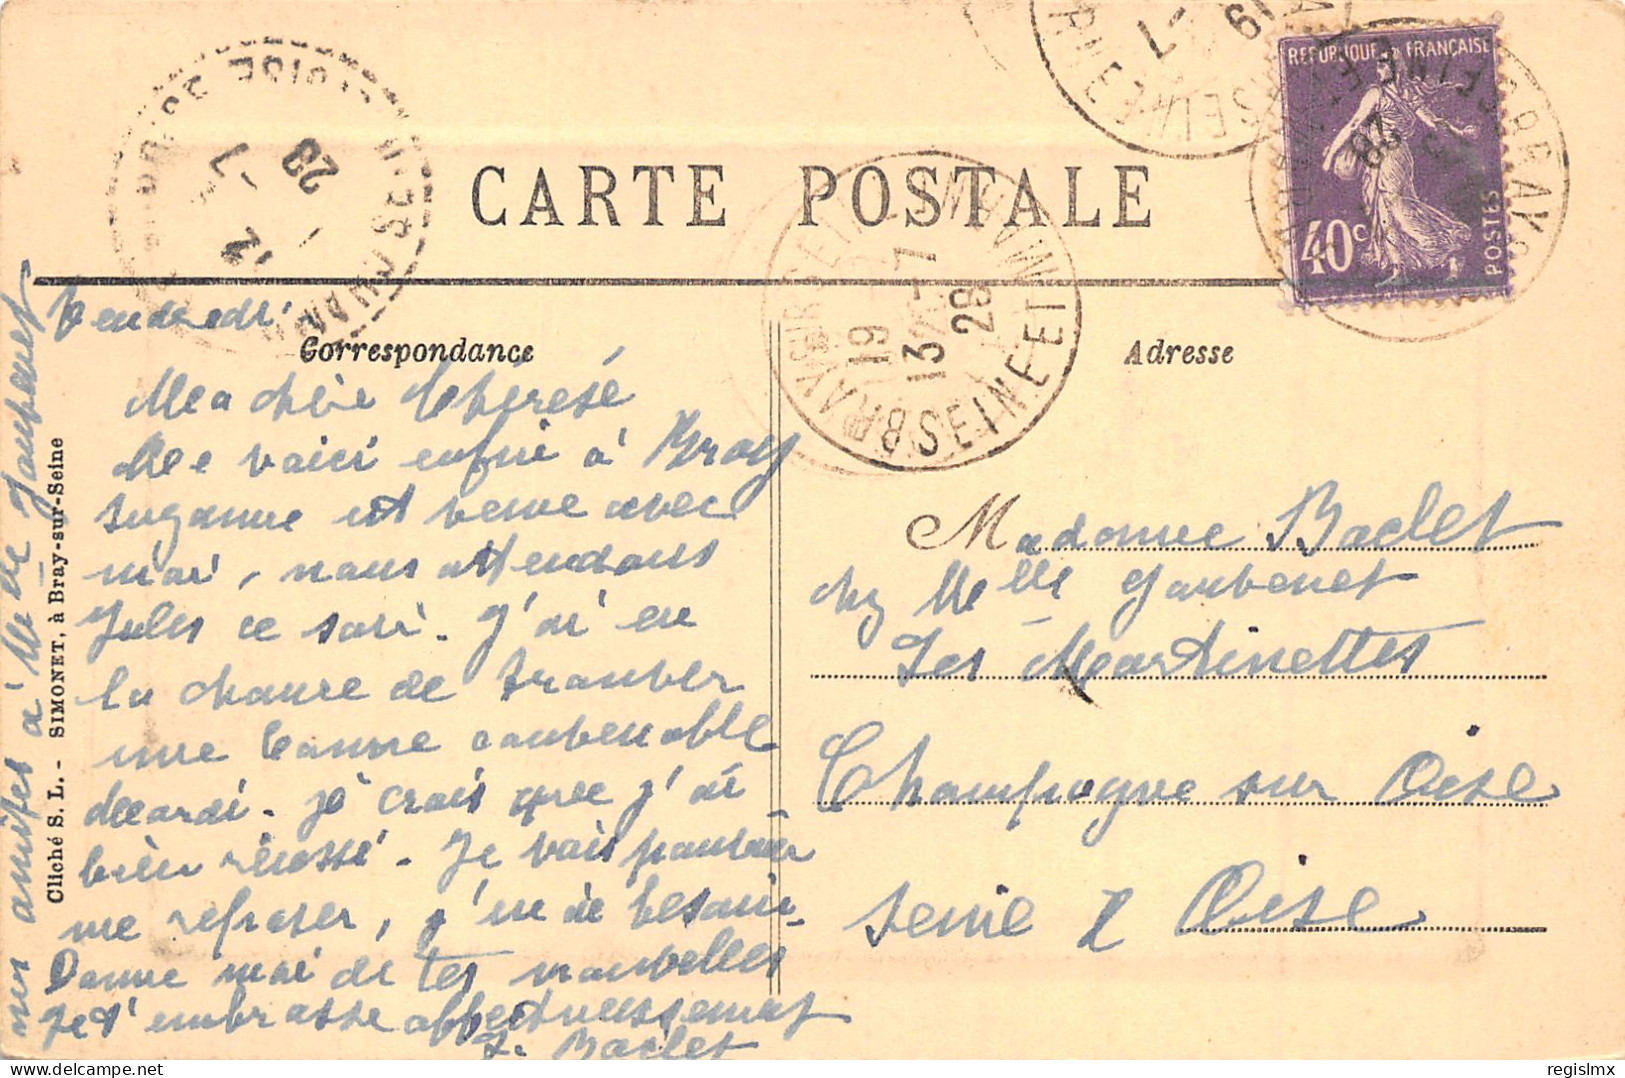 CARTE POSTALE
REPUBLIQUE FRANÇAISE
40c
POSTES
BRAY-SUR-SEINE
SEINE ET MARNE
19
13 -7
28
Correspondance
Adresse
Vendredi.
Ma chère Thérèse
Me voici enfin à Bray
Suzanne est venue avec
moi, nous attendons
Jules ce soir. J'ai eu
la chance de trouver
une bonne convenable
Mardi. je crois que j'ai
bien réussi. Je vais pouvoir
me reposer, j'en ai besoin.
Donne moi de tes nouvelles
Je t'embrasse affectueusement
Baclet
mes amitiés à Mlle Jauvenet
Cliché S. L. - SIMONET, à Bray-sur-Seine
Madame Baclet
chez Melle Jauvenet
Les Martinettes
Champagne sur Oise
Seine & Oise
regislmx
delcampe.net